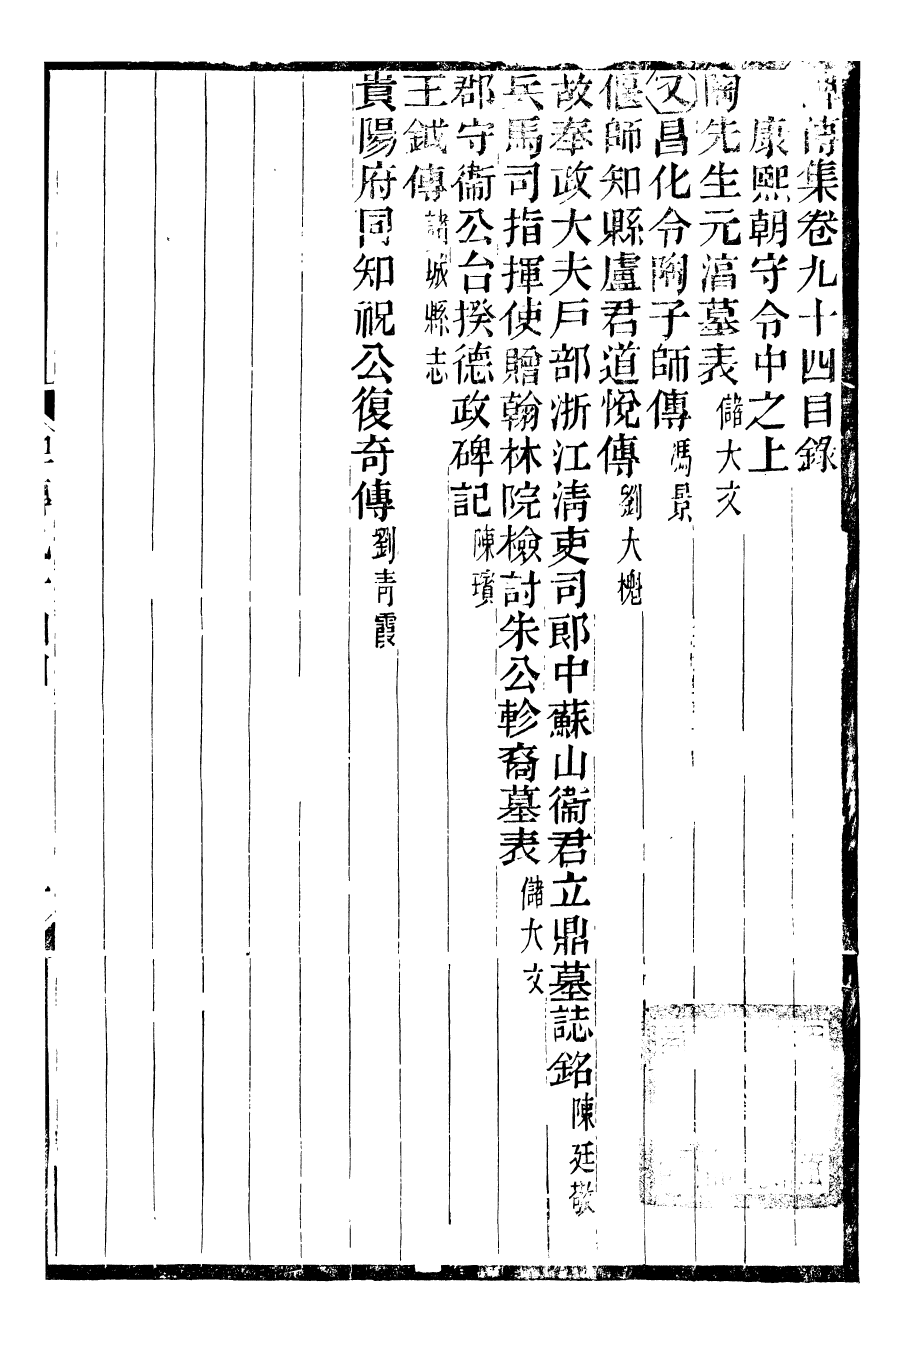 碑傳集卷九十四目錄
康熙朝守令中之上
陶先生元淳墓表 儲大文
又昌化令陶子師傳 馮景
偃師知縣盧君道悅傳 劉大櫆
故奉政大夫戶部浙江清吏司郎中蘇山衞君立鼎墓誌銘 陳廷敬
兵馬司指揮使贈翰林院檢討朱公軫裔墓表 儲大文
郡守衞公台揆德政碑記 陳璸
王鉞傳 諸城縣志
貴陽府同知祝公復奇傳 劉青霞